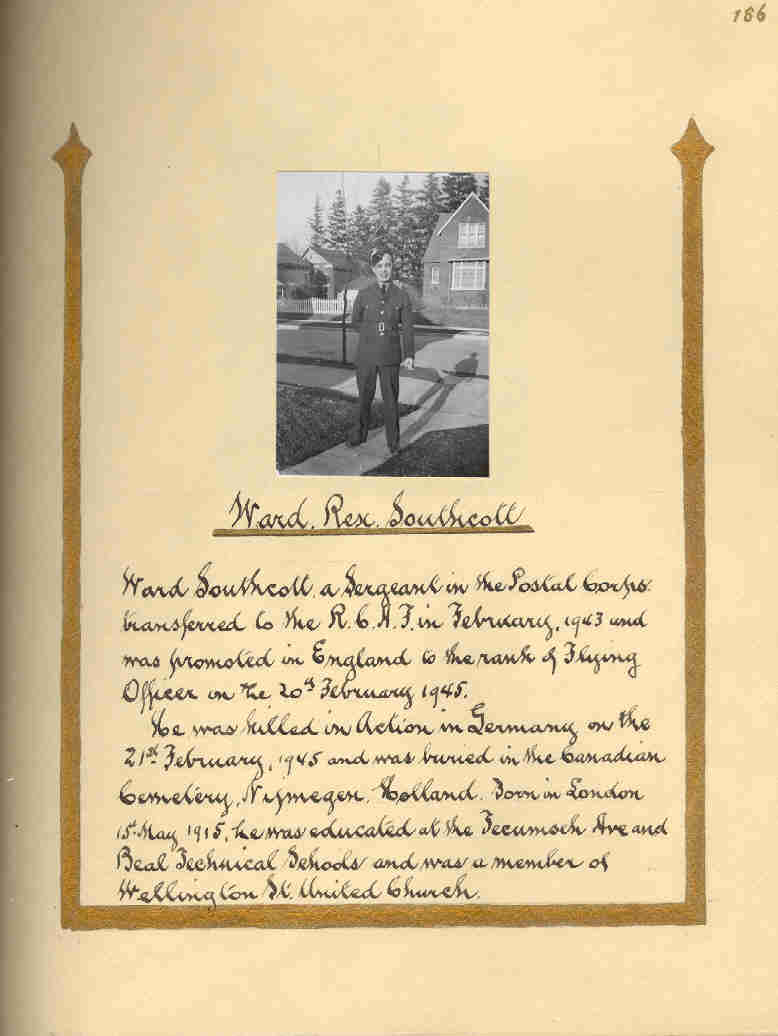 186
Ward. Rex. Southcott
Ward Southcott, a Sergeant in the Postal Corps.
transferred to the R.C.A.F. in February, 1943 and
was promoted in England to the rank of Flying
Officer on the 20th February 1945.
He was killed in Action in Germany on the
21st February, 1945 and was buried in the Canadian
Cemetery, Nijmegen, Holland. Born in London
1st May 1915, he was educated at the Tecumseh Ave and
Beal Technical Schools and was a member of
Wellington St. United Church.